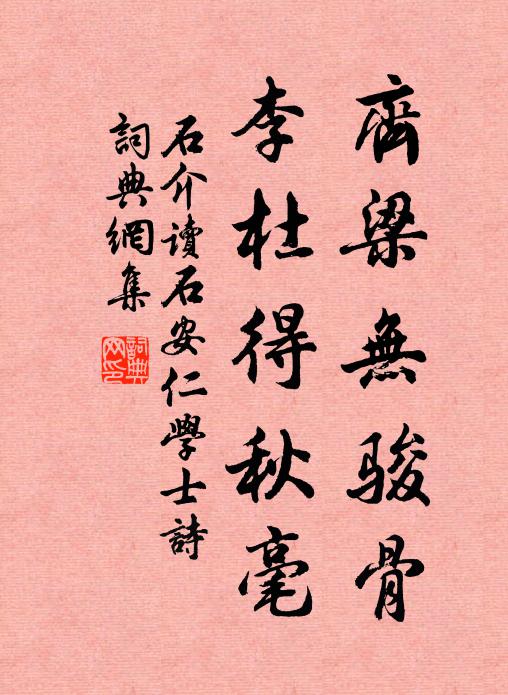 齊梁無駿骨
李杜得秋毫
石介讀石安仁學士詩
詞典網集
詞典網印